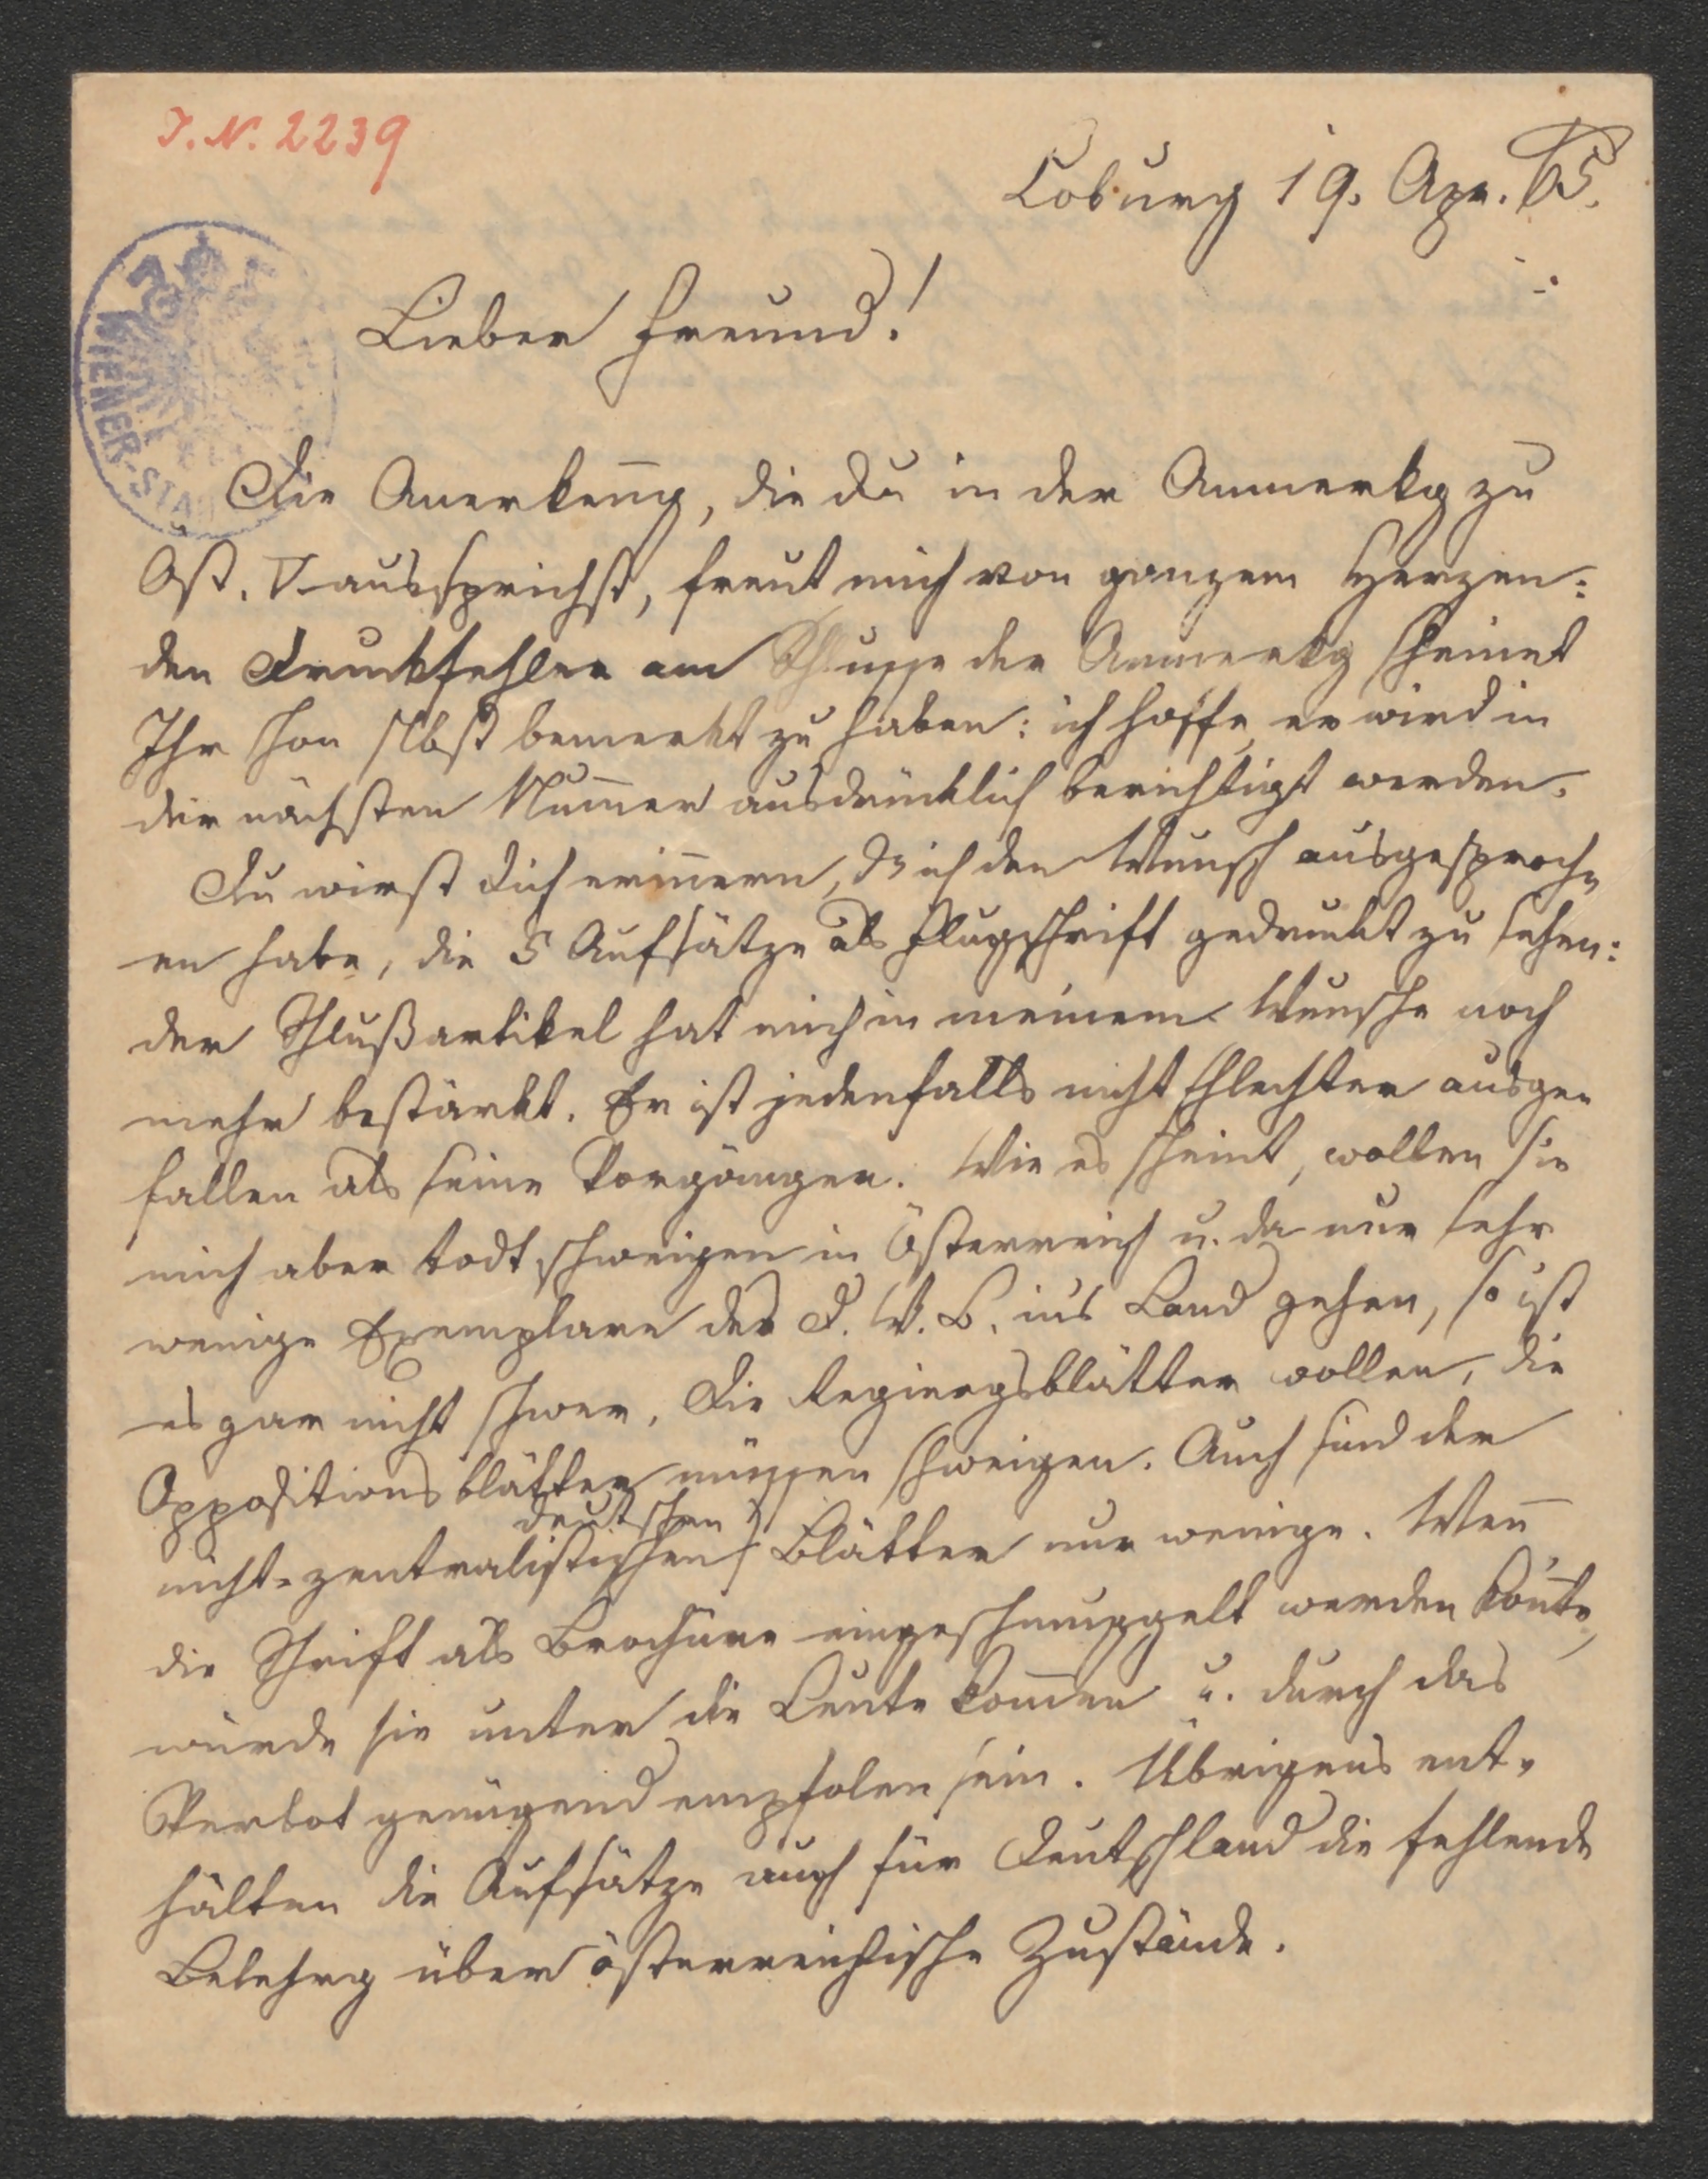 I. N. 2239
Coburg 19. Apr. 65.
WIENER-STA
Lieber Freund!
Die Anerkenng, die Du in der Anmerkg zu
Öst. V aussprichst, freut mich von ganzem Herzen:
den Druckfehler am Schlusse der Anmerkg scheinet
Ihr schon selbst bemerkt zu haben: ich hoffe er wird in
der nächsten Numer ausdrücklich berichtigt werden.
Du wirst Dich erinern, ich den Wunsch ausgesproch-
en habe, die 5 Aufsätze als Flugschrift gedruckt zu sehen:
der Schlußartikel hat mich in meinem Wunsche noch
mehr bestärkt. Er ist jedenfalls nicht schlechter ausge-
fallen als seine Vorgänger. Wie es scheint, wollen sie
mich aber todt schweigen in Österreich u. da nur sehr
wenige Exemplare des D. W. B. ins Land gehen, so ist
es gar nicht schwer. Die Regiergsblätter wollen, die
Oppositionsblätter müssen schweigen. Auch sind der
deutschen
nicht-zentralistischen Blätter nur wenige. Wen
die Schrift als Brochüre eingeschmuggelt werden könte,
würde sie unter die Leute komen u. durch das
Verbot genügend empfolen sein. Übrigens ent-
hälten die Aufsätze auch für Deutschland die fehlende
Belehrg über österreichische Zustände.